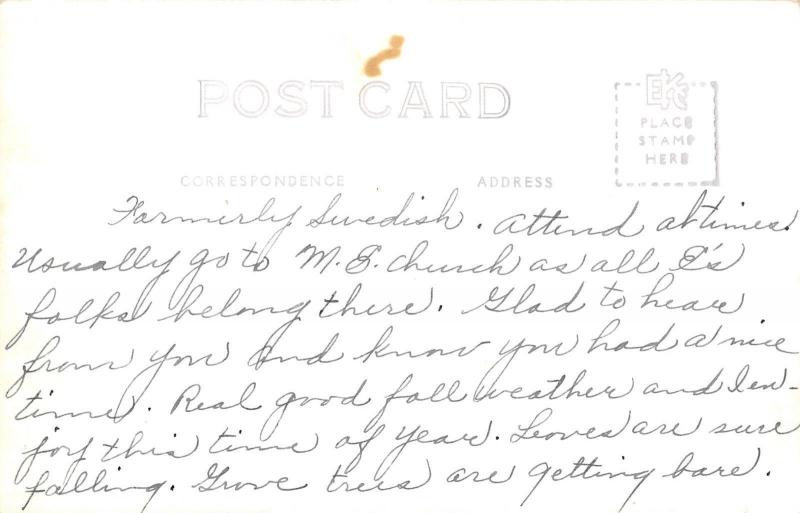 POST CARD
EKC
PLACE
STAMP
HERE
CORRESPONDENCE
ADDRESS
Formirly Swedish. Attend at times.
Usually go to M.E. church as all E's
folks belong there. Glad to hear
from you and know you had a nice
time. Real good fall weather and I en-
joy this time of year. Leaves are sure
falling. Grove trees are getting bare.